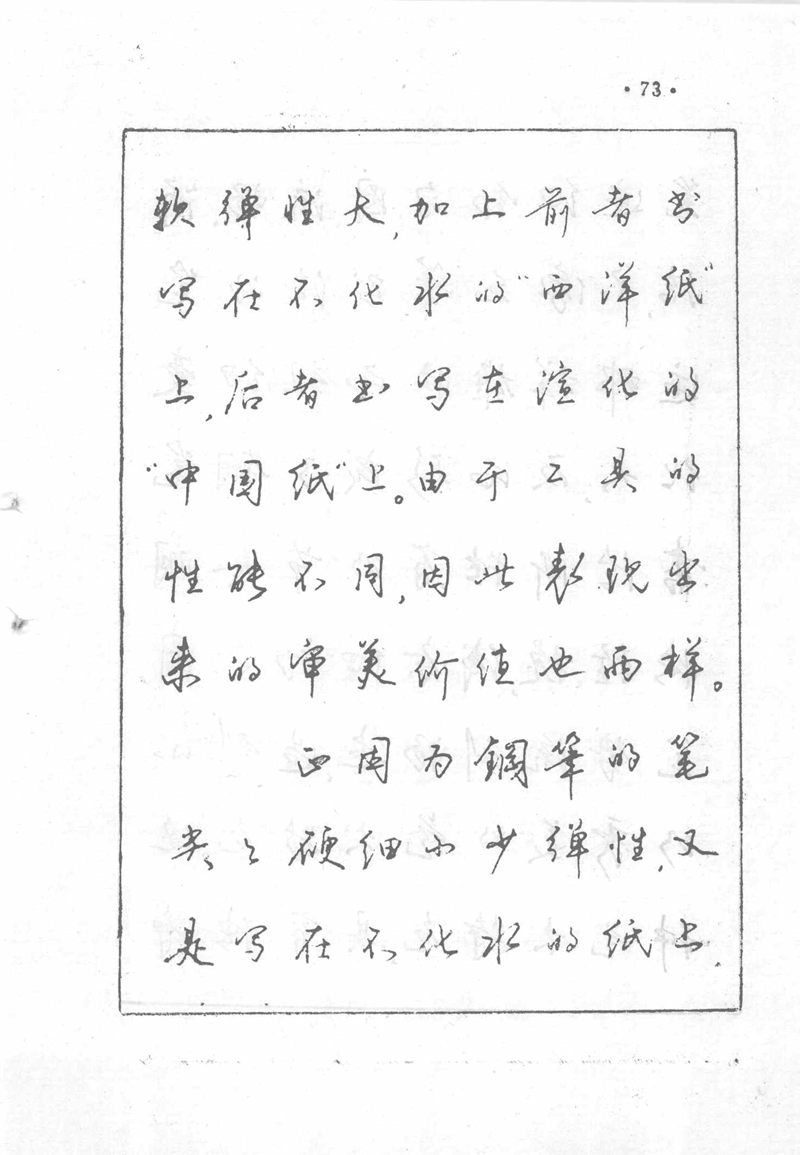 ·73·
软弹性大,加上前者书
写在不化水的"西洋纸"
上,后者书写在渲化的
"中国纸"上。由于工具的
性能不同,因此表现出
来的审美价值也两样。
正因为鋼筆的笔
尖硬细小少弹性,又
是写在不化水的纸上,